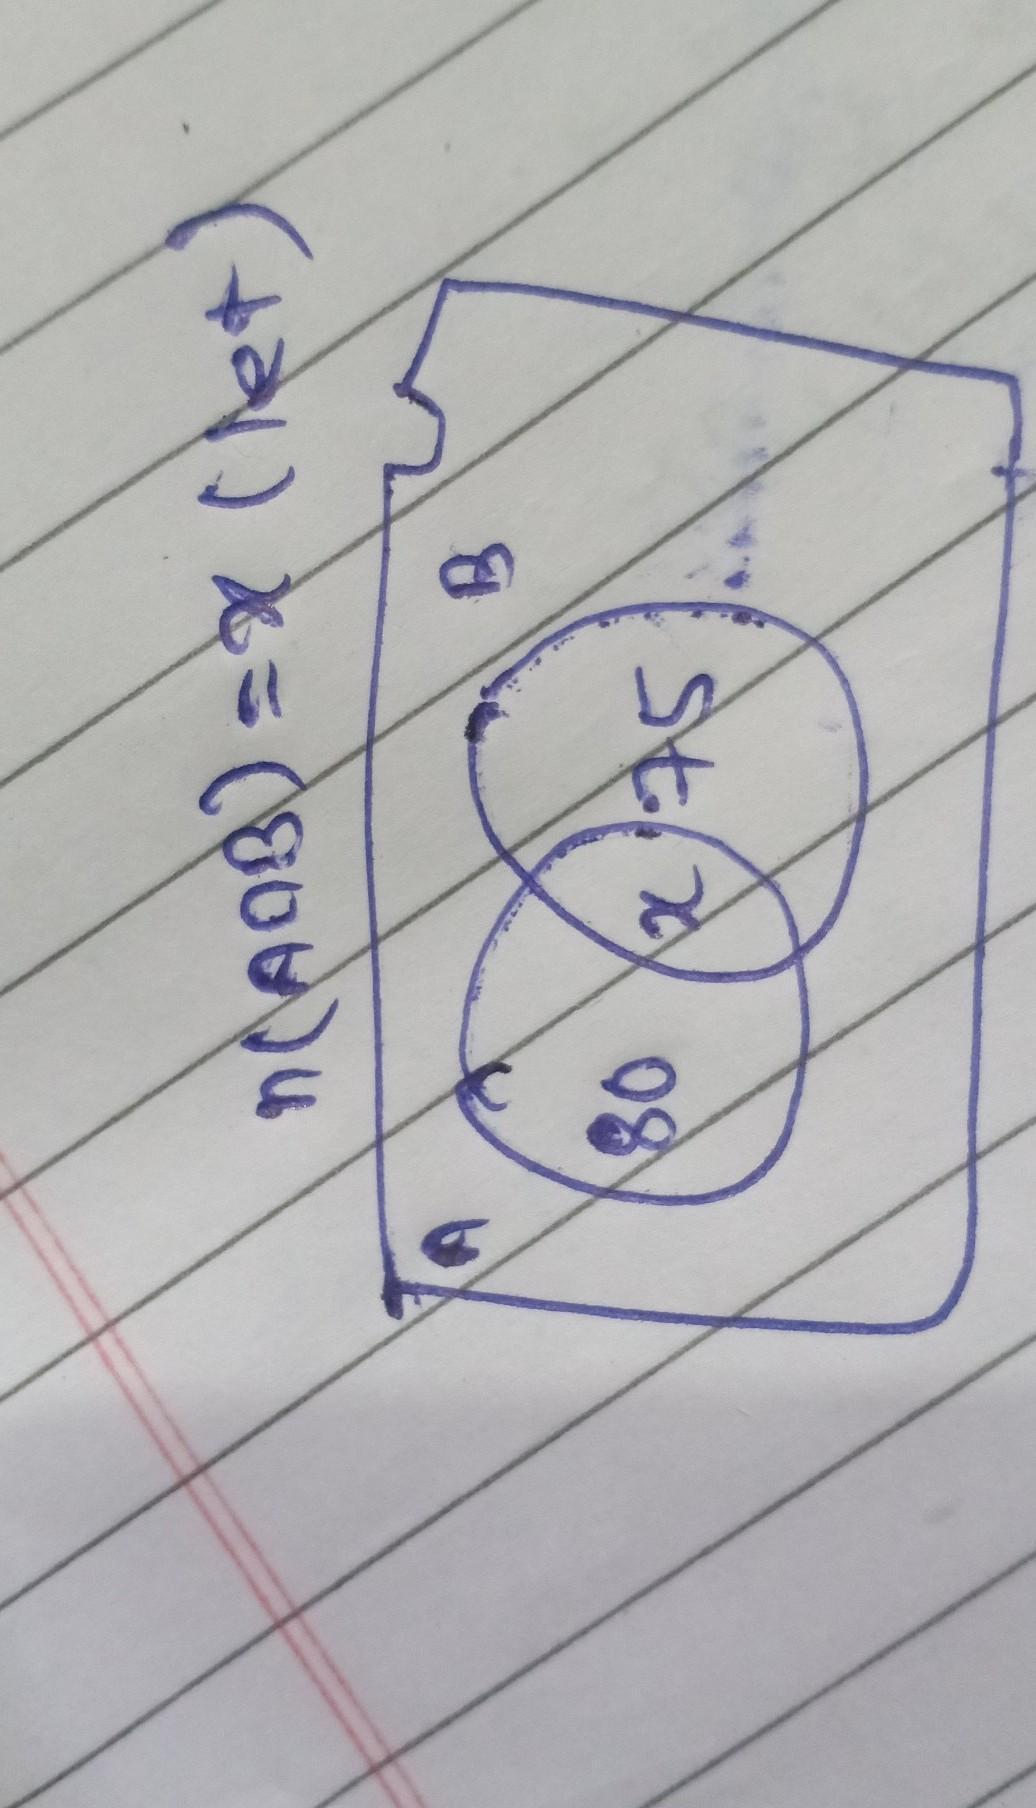 n(A∩B) = x (let)
A B
80 x 75